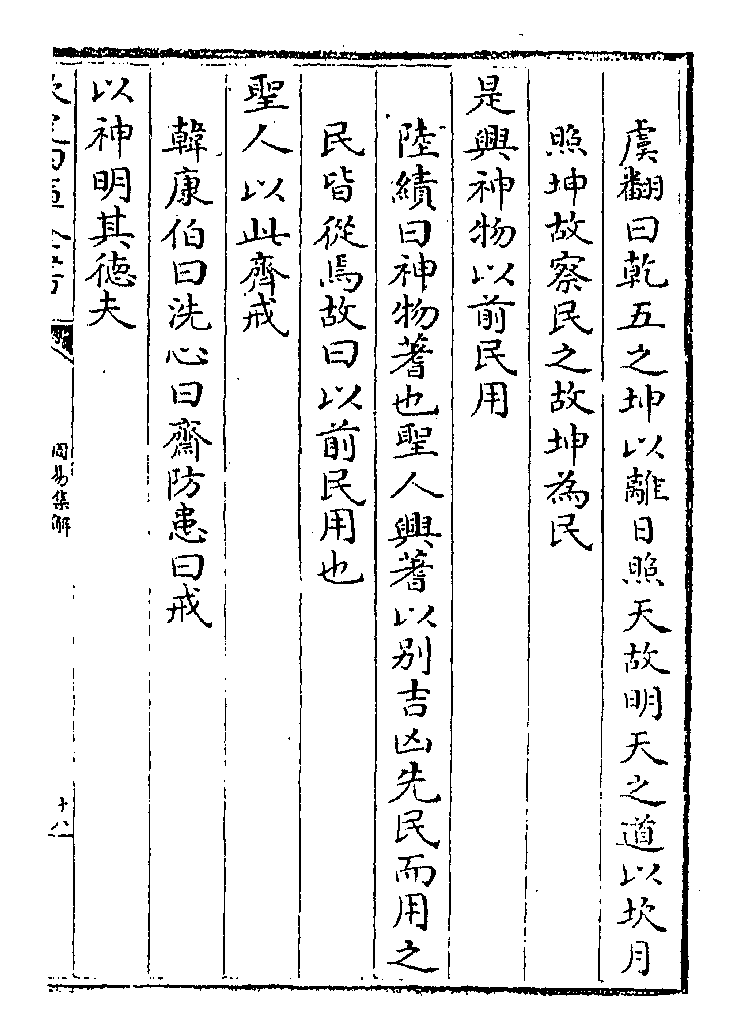 虞翻曰乾五之坤以離日照天故明天之道以坎月
照坤故察民之故坤為民
是興神物以前民用
陸績曰神物蓍也聖人興蓍以别吉凶先民而用之
民皆從焉故曰以前民用也
聖人以此齊戒
韓康伯曰洗心曰齋防患曰戒
以神明其德夫
周易集解
十八